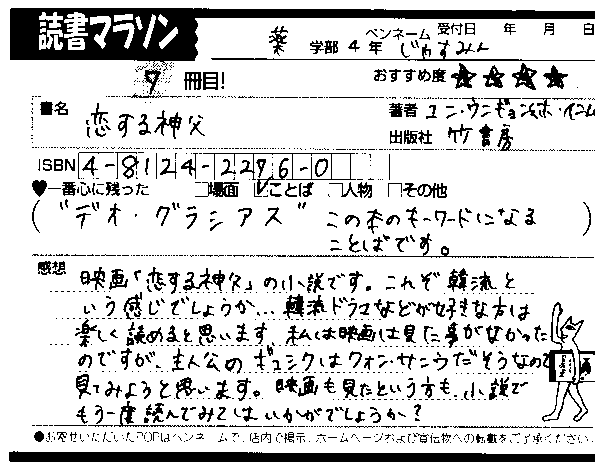 読書マラソン
薬 学部 4 年 ペンネーム じゃすみん 受付日 年 月 日
7 冊目! おすすめ度 ★ ★ ★ ★
書名 恋する神父
著者 ユン・ウンギョン ホ・インム
出版社 竹書房
ISBN 4-8124-2276-0
♥一番心に残った □場面 ☑ことば □人物 □その他
("デオ・グラシアス" この本のキーワードになる
ことばです。)
感想
映画「恋する神父」の小説です。これぞ韓流と
いう感じでしょうか… 韓流ドラマなどが好きな方は
楽しく読めると思います。私は映画は見た事がなかった
のですが、主人公のギュシクはクォン・サンウだそうなので
見てみようと思います。映画も見たという方も、小説で
もう一度読んでみてはいかがでしょうか?
●お寄せいただいたPOPはペンネームで、店内で掲示、ホームページおよび宣伝物への転載をご了承ください。